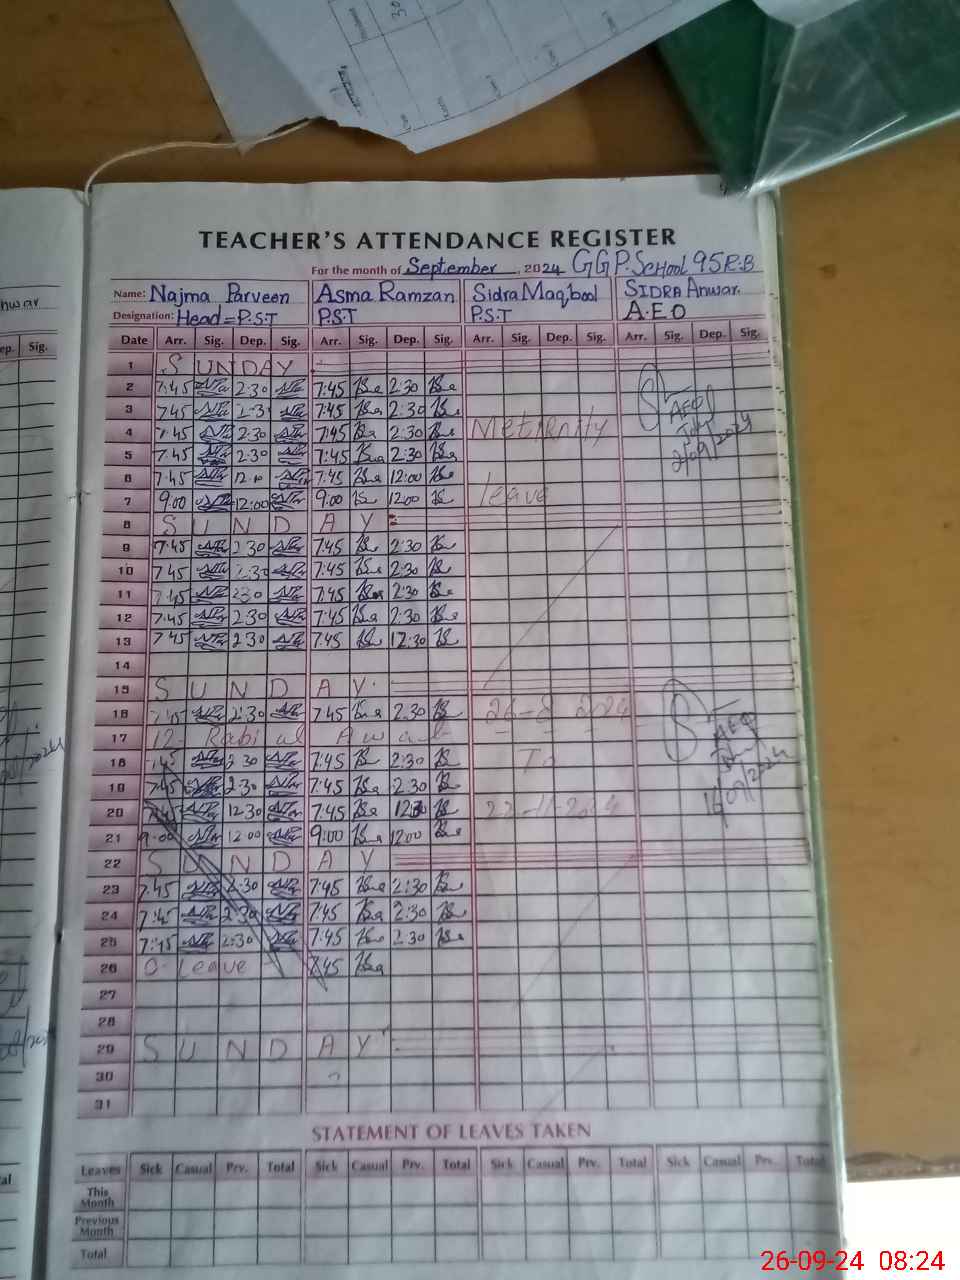 TEACHER'S ATTENDANCE REGISTER
For the month of September, 2024 GGP.SCHOOL 95R.B
Name: Najma Parveen Asma Ramzan Sidra Maqbool SIDRA Anwar.
Designation: Head=P.S.T P.S.T P.S.T A.E.O
Date Arr. Sig. Dep. Sig. Arr. Sig. Dep. Sig. Arr. Sig. Dep. Sig. Arr. Sig. Dep. Sig.
1 SUNDAY
2 7:45 2:30 7:45 2:30
3 7:45 2:3 7:45 2:30 AEO
4 7:45 2:30 7:45 2:30 Meternity
5 7:45 2:30 7:45 2:30 2/09/2024
6 7:45 12:00 7:45 12:00
7 9:00 12:00 9:00 12:00 leave
8 SUNDAY
9 7:45 2:30 7:45 2:30
10 7:45 2:30 7:45 2:30
11 7:45 2:30 7:45 2:30
12 7:45 2:30 7:45 2:30
13 7:45 2:30 7:45 12:30
14
15 SUNDAY
16 7:45 2:30 7:45 2:30 26-8-2024
17 12- Rabi ul Awal AEO
18 7:45 2:30 7:45 2:30 To
19 7:45 2:30 7:45 2:30
20 7:45 12:30 7:45 22-11-2024 16/09/2024
21 9:00 12:00 9:00 12:00
22 SUNDAY
23 7:45 2:30 7:45 2:30
24 7:45 2:30 7:45 2:30
25 7:45 2:30 7:45 2:30
26 Leave 7:45
27
28
29 SUNDAY
30
31
STATEMENT OF LEAVES TAKEN
Leaves Sick Casual Prv. Total Sick Casual Prv. Total Sick Casual Prv. Total Sick Casual Prv. Total
This Month
Previous Month
Total
26-09-24 08:24